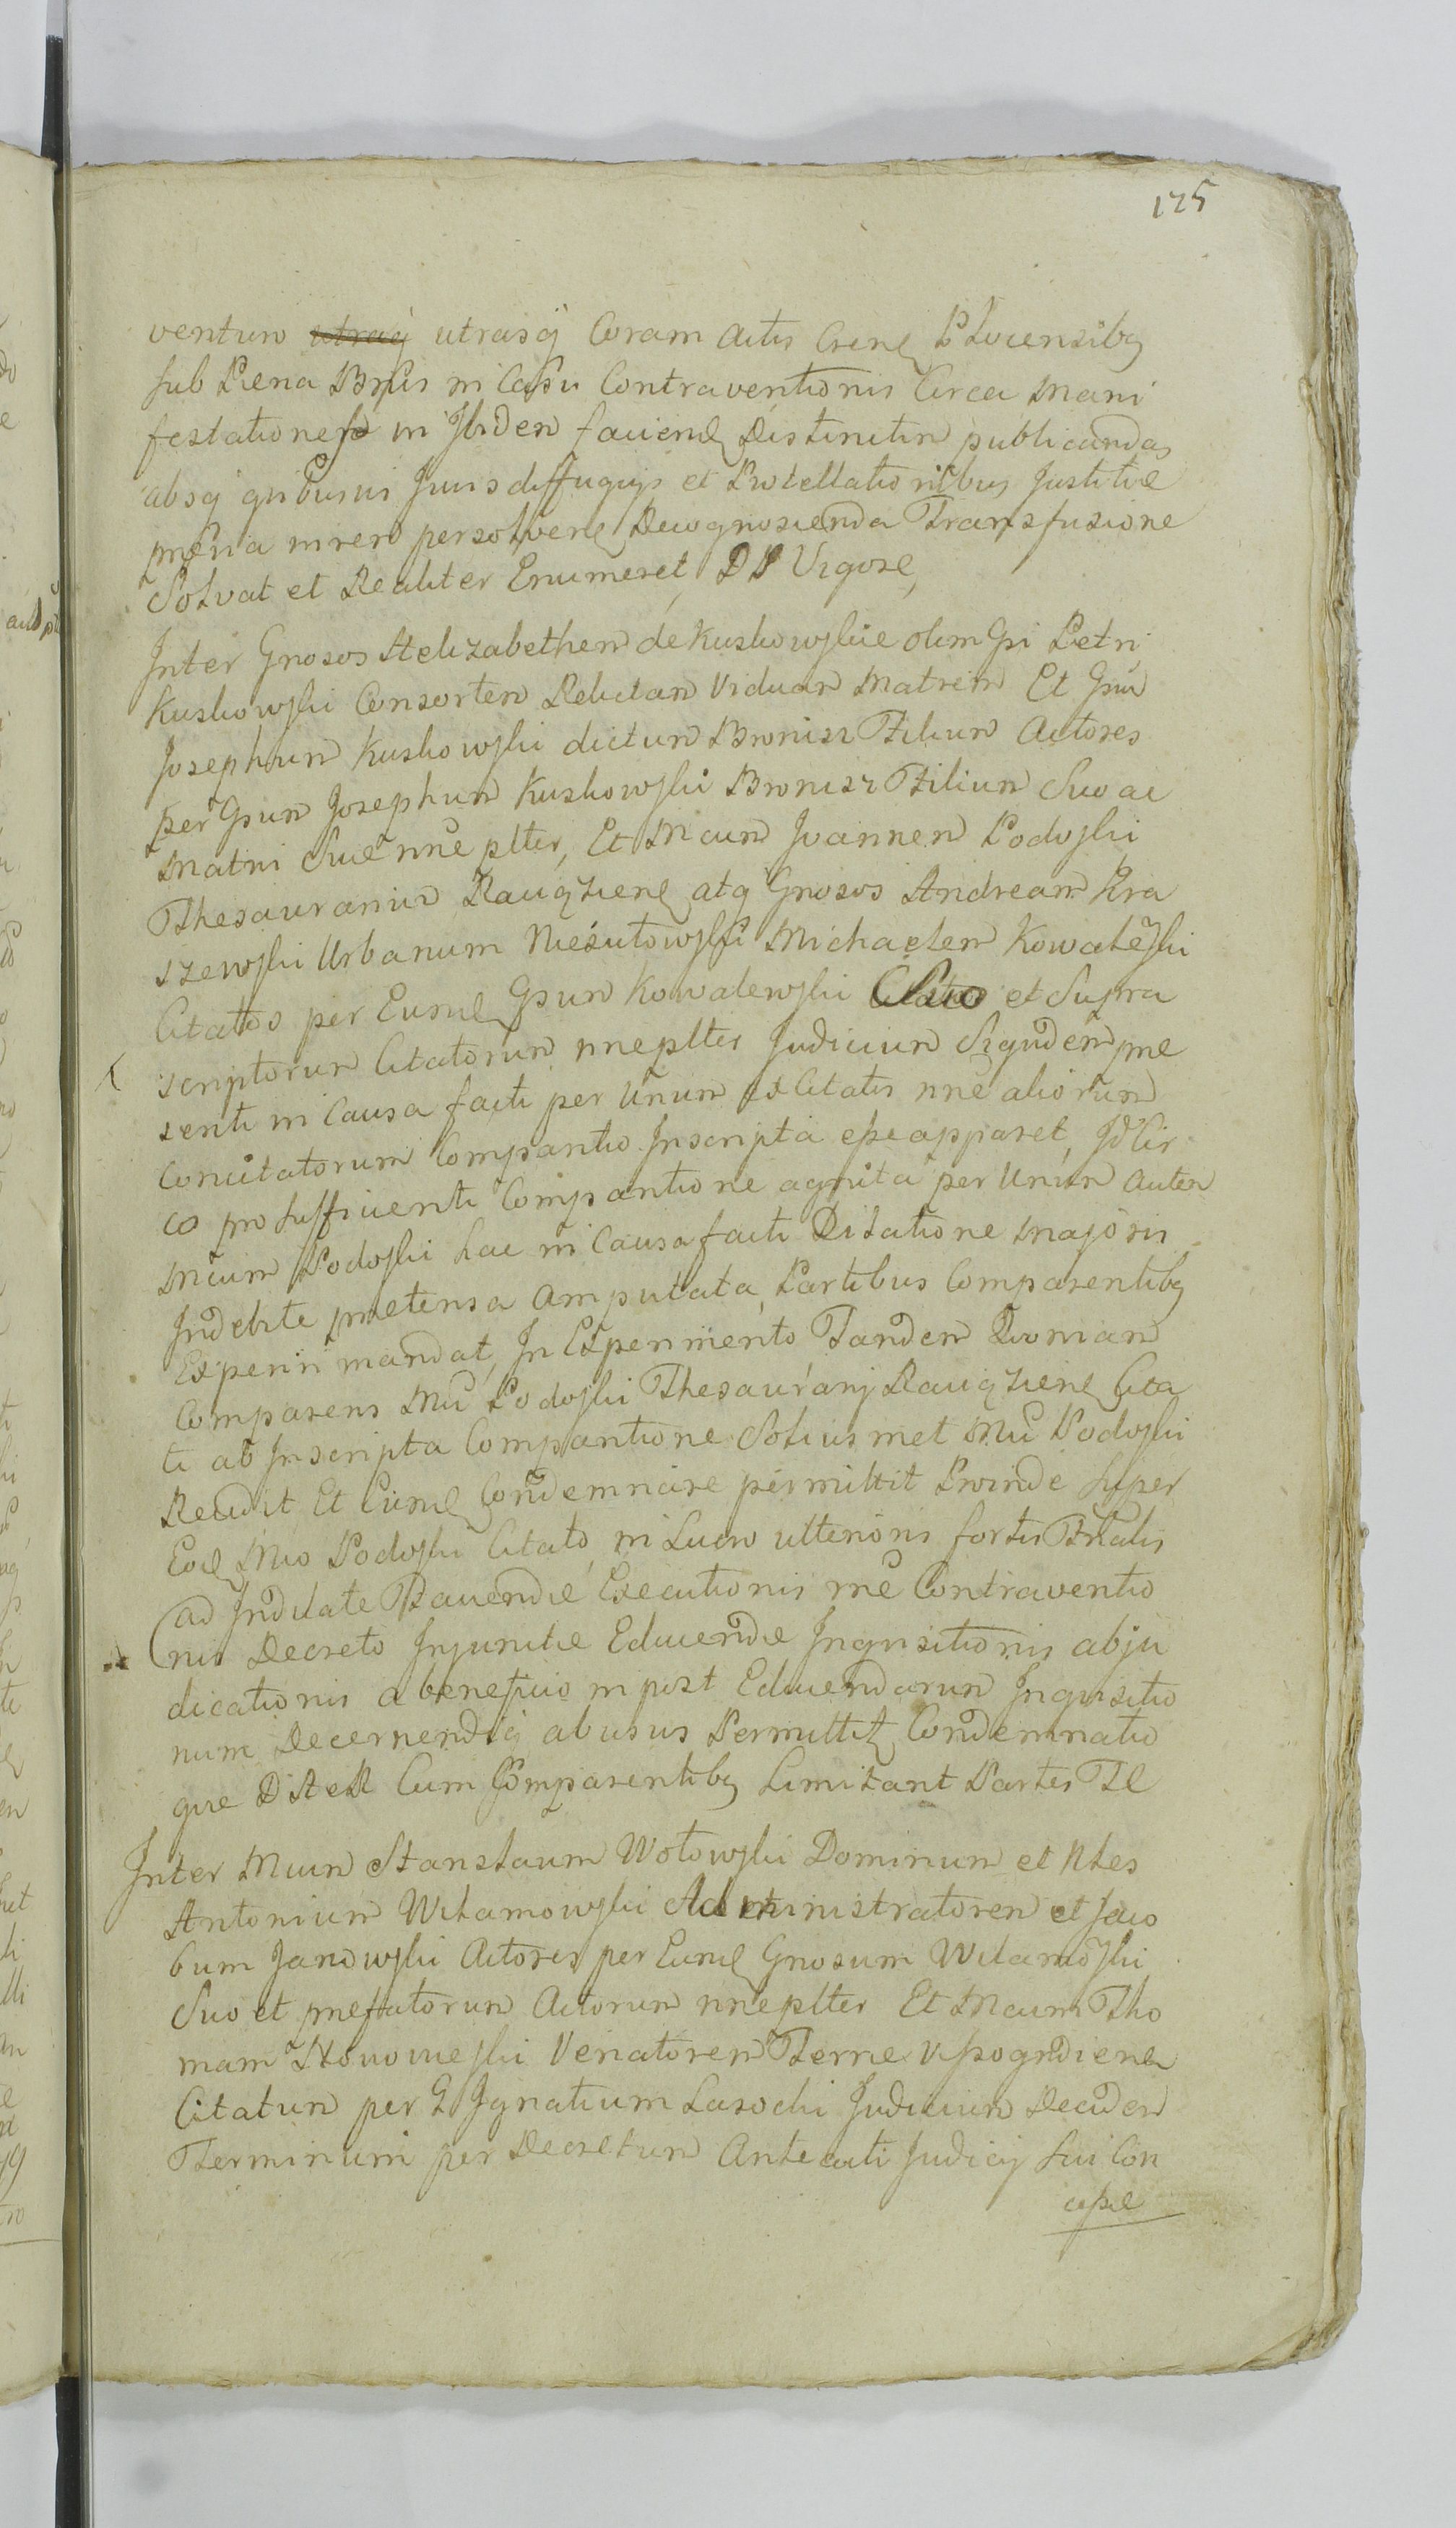 175
ventum utraq utrasq Coram Actis Crenl Plocensibq
sub Paena Bnis in Casu Contraventionis Circa Mani
festationes in Ibidem faciend Distinctim publicandas
absq quibusvis Juris diffugiys et Protellationibus Justitiae
persolvend Decognoscenda Transfusione
Solvat et Realiter Enumeret, DD Vigore,
Inter Gnosos Helizabetham de Kuskowskie olim Gsi Petri
Kuskowski Consortem Relictam Viduam Matrem Et Gsm
Josephum Kuskowski dictum Bronisz Filium Actores
per Gsum Josephum Kuskowski Bronisz Filium Suo ac
Matri Suae nne plter, Et Mcum Joannem Podoski
Thesaurarium Raciązienl atq Gnosos Andream Kra
szewski Urbanum Nieżutowski Michaelem Kowalewski
Citatos per Eundl Gsum Kowalewski et Supra
scriptorum Citatorum nneplter Judicium Siquidem prae
senti in Causa facti per Unum ex Citatis nne aliorum
Concitatorum Compantio Inscripta esse apparet, Id Cir
co pro sufficienti Compantione agnita per Unum autem
Mcum Podoski hac in Causa facti Dilatione Majoris
Indebite praetensa amputata, Partibus Comparentibq
Experiri mandat, In Experimento Tandem Quoniam
Comparens Mci Podoski Thesaurarij Raciązienl Cita
ti ab Inscripta Compantione Solius met Mci Podoski
Recedit Et Eundl Condemnare permittit Proinde super
Eodl Mco Podoski Citato, in Lucro ulterioris fortis Fnalis
ad Indilate Executionis rne Contraventio
nis Decreto Injunctae Educendae Inquisitionis abju
dicationis a beneficio in post Educendarum Inquisitio
num Decernendiq abusus Permittit Condemnatio
que Cum Comparentibq Limitant Partes
Inter Mcum Stanslaum Wołowski Dominum et Nles
Antonium Witamowski Administratorem et Jaco
bum Janowski Actores per Eundl Gnosum Witamowski
Suo et praefatorum Actorum nneplter Et Mcum Tho
mam Venatorem Terrae Wyszogrdienl
Citatum per G Ignatium Lasocki Judicium Decidendl
Terminum per Decretum Anteacti Judicij sui Con
cessae